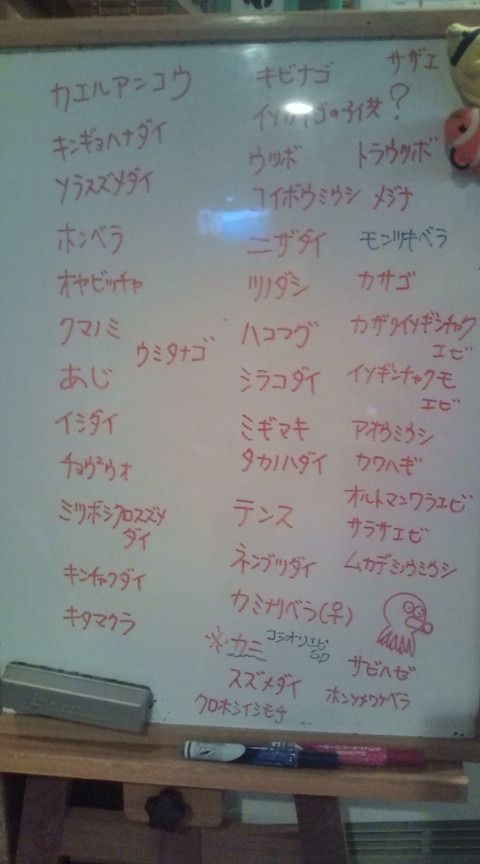 カエルアンコウ
キンギョハナダイ
ソラスズメダイ
ホンベラ
オヤビッチャ
クマノミ
ウミタナゴ
あじ
イシダイ
チョウチョウウオ
ミツボシクロスズメ
ダイ
キンチャクダイ
キタマクラ
キビナゴ
の子供?
ウツボ
コイボウミウシ
ニザダイ
ツノダシ
ハコフグ
シラコダイ
ミギマキ
タカノハダイ
テンス
ネンブツダイ
カミナリベラ(♀)
※カニ
コシオリエビ
SP
スズメダイ
クロホシイシモチ
サザエ
トラウツボ
メジナ
モンツキベラ
カサゴ
カザリイソギンチャク
エビ
イソギンチャクモ
エビ
アオウミウシ
カワハギ
オルトマンワラエビ
サラサエビ
ムカデミノウミウシ
サビハゼ
ホンソメワケベラ